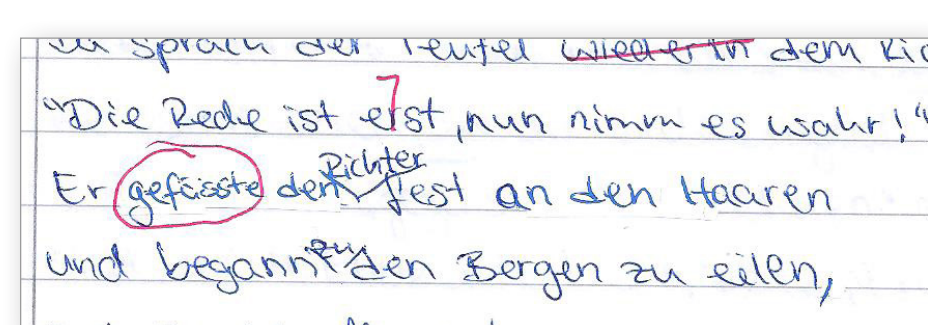 Da sprach der Teufel wieder in dem Kir
"Die Rede ist erst, nun nimm es wahr!"
Er gefässte den Richter fest an den Haaren
und begann zu den Bergen zu eilen,